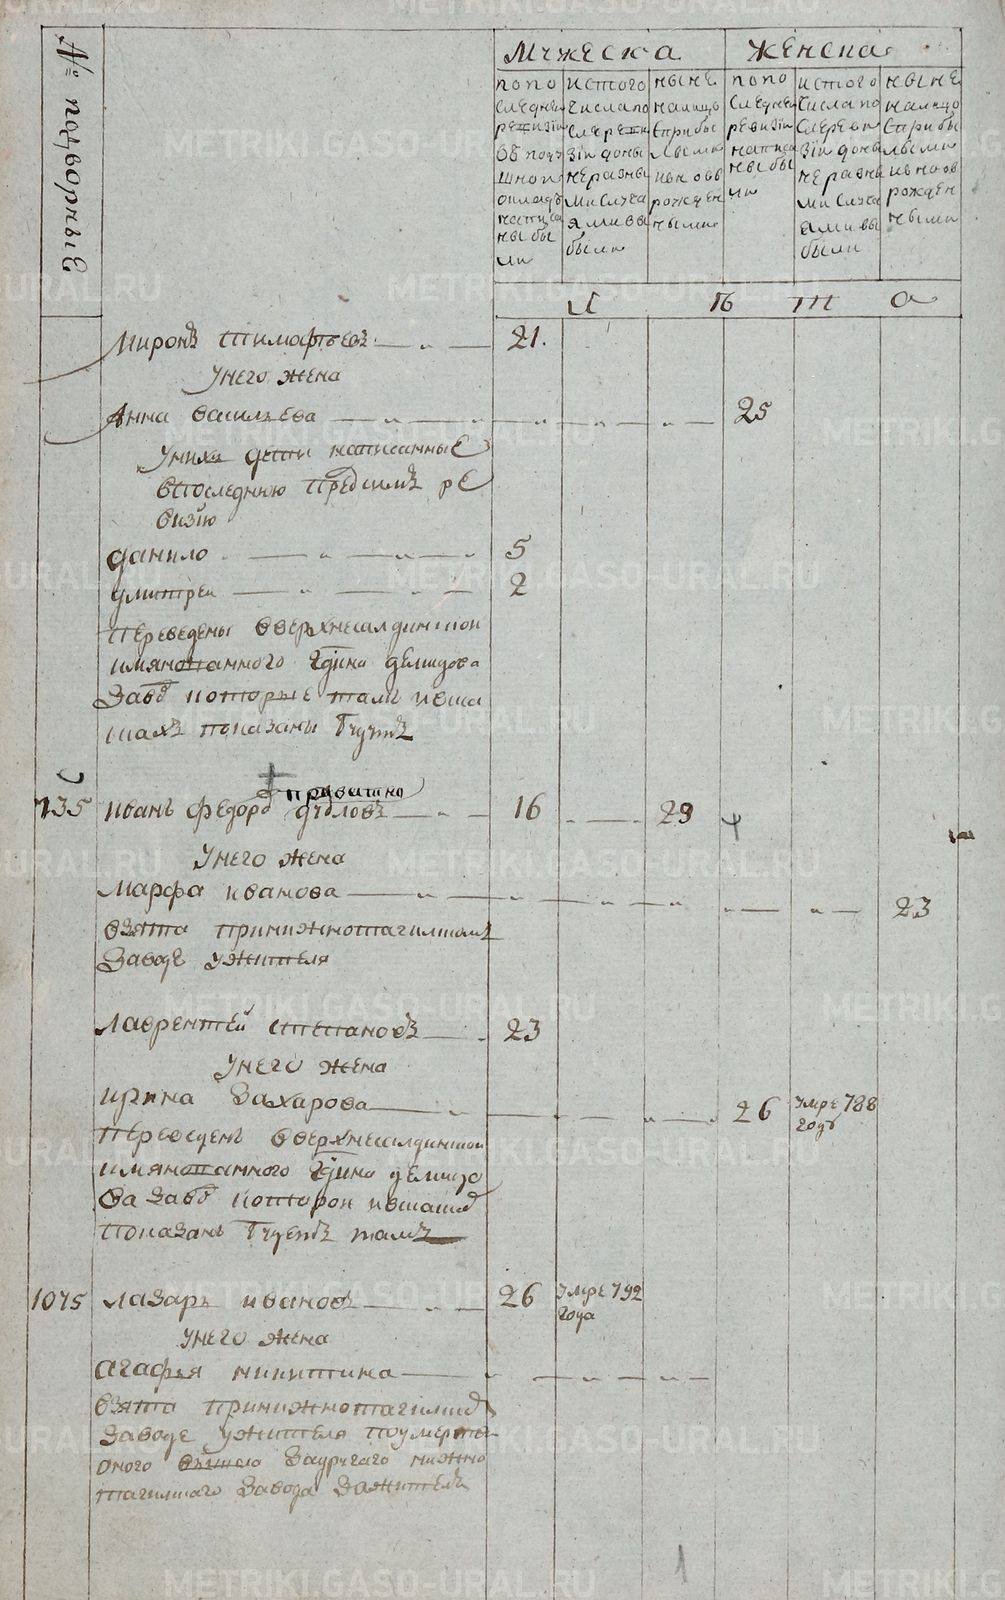 № подворные
Мужеска
Женска
по последней ревизии об подушном окладе написаны были
ис того числа по сле ревизии доныне разными случаями выбыли
ныне налицо с прибылыми и вновь рожденными
по последней ревизии написаны были
ис того числа по сле ревизии доныне разными случаями выбыли
ныне налицо с прибылыми и вновь рожденными
Л Ѣ т а
Миронъ Тимофѣевъ 21.
У него жена
Анна Васильева 25
У них дѣти написанные
в последнюю пред симъ ре
визiю
Данило 5
Дмитрей 2
Переведены в Верхнесалдинскои
имянованного Гдина Демидова
Завд которые тамъ и в ска
скахъ показаны будутъ
735 Иванъ Федоръ Дубловъ 16 29
У него жена
Марфа Иванова 23
Взята при Нижнотагилскомъ
Заводе у жителя
Лаврентей Степановъ 23
У него жена
Ирина Захарова 26 Умре 788
годъ
Переведенъ в Верхнесалдинскои
имянованного Гдина Демидо
ва Завд которои и в скаске
показанъ будетъ тамъ
1075 Лазарь Ивановъ 26 Умре 792
года
У него жена
Агафья Никитина
Взята при Нижнотагилском
Заводе у жителя по умертви
оного вышла за другаго Нижно
тагилскаго Завода за жителя
METRIKI.GASO-URAL.RU